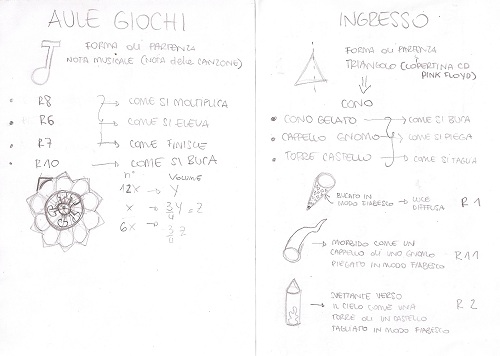 AULE GIOCHI
FORMA DI PARTENZA
NOTA MUSICALE (NOTA delle CANZONE)
R8 COME SI MOLTIPLICA
R6 COME SI ELEVA
R7 COME FINISCE
R10 COME SI BUCA
n° VOLUME
12x Y
x 3/4 Y = 2
6x 3/4 2
INGRESSO
FORMA DI PARTENZA
TRIANGOLO (COPERTINA CD
PINK FLOYD)
CONO
CONO GELATO COME SI BUCA
CAPPELLO GNOMO COME SI PIEGA
TORRE CASTELLO COME SI TAGLIA
BUCATO IN
MODO FIABESCO LUCE
DIFFUSA R1
MORBIDO COME UN
CAPPELLO DI UNO GNOMO R11
PIEGATO IN MODO FIABESCO
SVETTANTE VERSO
IL CIELO COME UNA R2
TORRE DI UN CASTELLO
TAGLIATO IN MODO FIABESCO